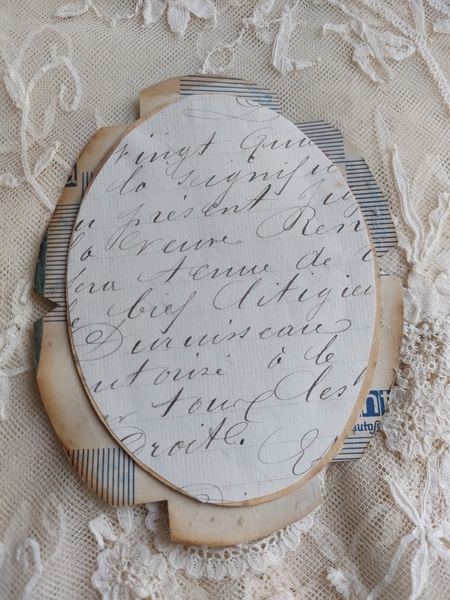 vingt qua
la signifi
u présent jug
la veuve Ren
era tenue de
le bief litigieu
Duruisseau
utorisé à le
tous les
Droite.
autos